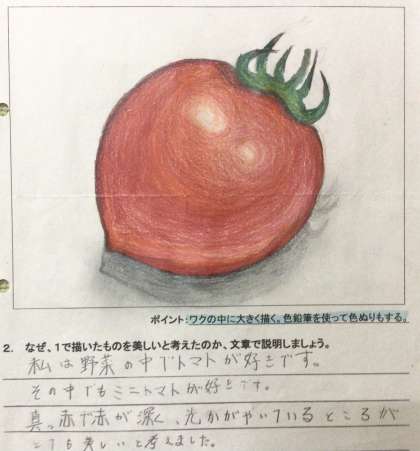 ポイント:ワクの中に大きく描く。色鉛筆を使って色ぬりもする。
2. なぜ、1で描いたものを美しいと考えたのか、文章で説明しましょう。
私は野菜の中でトマトが好きです。
その中でもミニトマトが好きです。
真っ赤で赤が深く、光かがやいているところが
とても美しいと考えました。